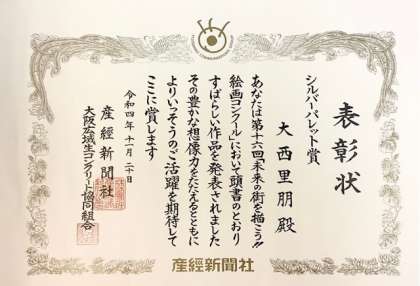 表彰状
シルバーパレット賞
大西里朋殿
あなたは第十六回「未来の街を描こう!!
絵画コンクール」において頭書のとおり
すばらしい作品を発表されました
その豊かな想像力をたたえるとともに
よりいっそうのご活躍を期待して
ここに賞します
令和四年十一月二十日
産經新聞社
大阪広域生コンクリート協同組合
産經新聞社